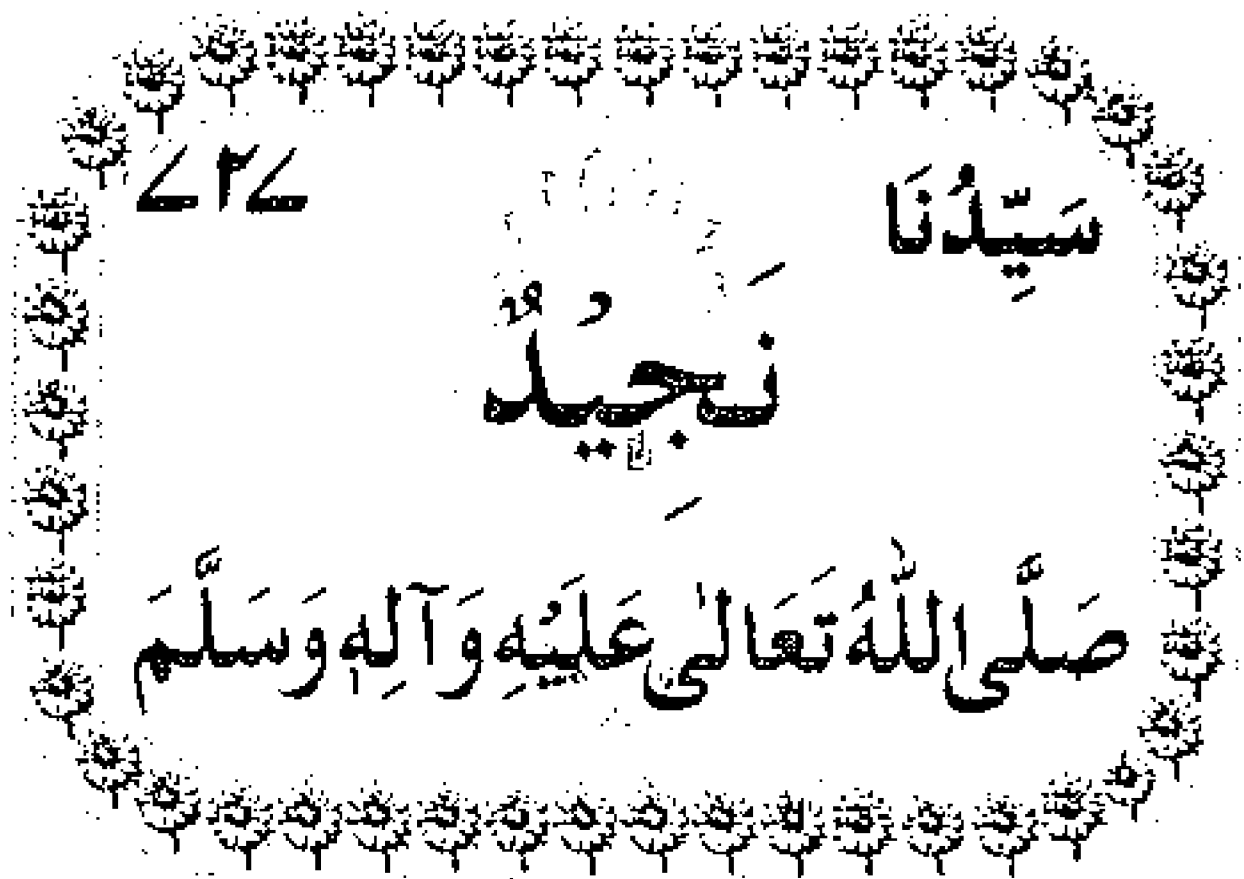 سَيِّدُنَا ۷۲۷
نَجِيْدٌ
صَلَّى اللّٰهُ تَعَالىٰ عَلَيْهِ وَآلِهٖ وَسَلَّمَ